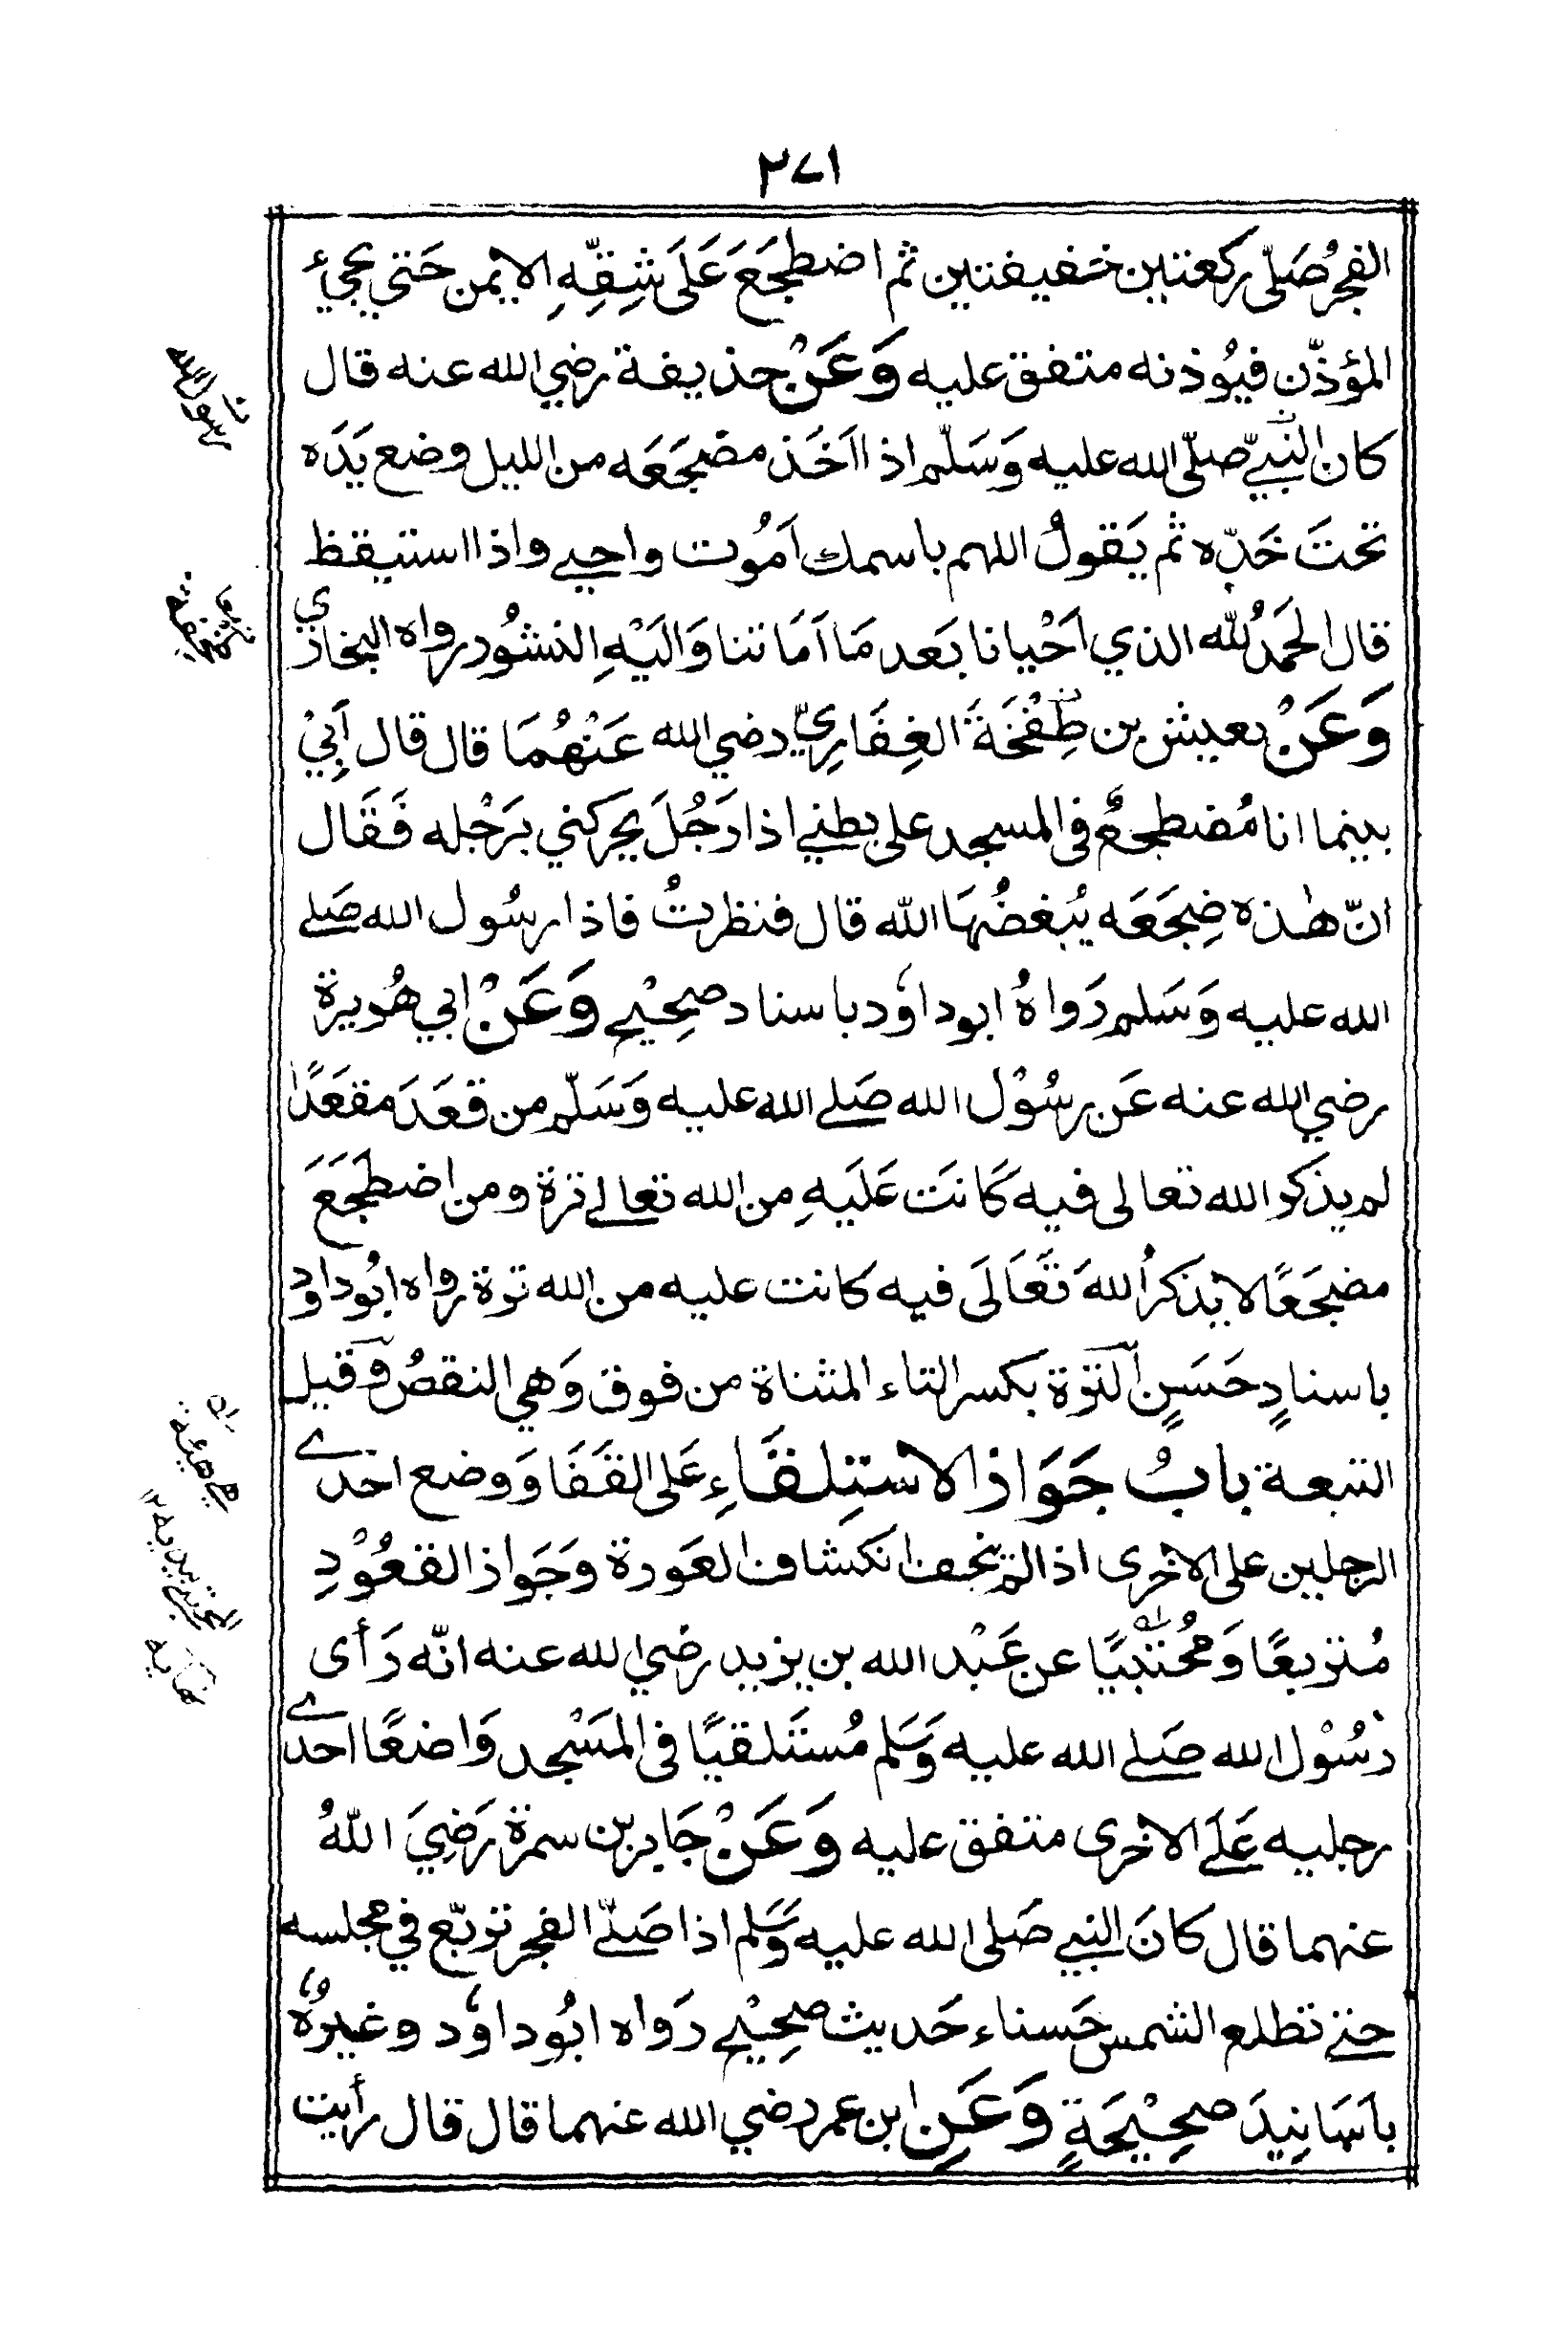 ٢٧١
الفجرُ صَلّى ركعتين خفيفتين ثم اضطجَعَ عَلَى شِقِّهِ الايمن حَتى يجيءُ
المؤذّن فيُوذنه متفق عليه وَعَنْ حذيفة رضي الله عنه قال
كان النبيّ صلّى الله عليه وَسَلّم اذا اَخَذ مضجَعَه من الليل وضع يَدَه
تحتَ خَدّه ثم يَقولُ اللهم باسمك اَمُوت واحيے واذا استيقظ
قال الحَمدُ للّٰه الذي اَحْيانا بَعد مَا اَمَاتنا وَالَيْهِ النشُور رواه البخاري
وَعَنْ يعيش بن طِخْفَةَ الغِفَارِيّ رضي الله عَنْهُمَا قال قال اَبِيْ
بينما انا مُضطجعٌ فى المسجد على بطنے اذا رَجُلَ يحركني برَجْله فَقَال
انّ هٰذه ضِجَعَه يُبغضُهَا الله قال فنظرتُ فاذا رسُول الله صَلے
الله عليه وَسَلم رَوَاهُ ابوداوٗد باسناد صحِيْح وَعَنْ ابي هُريرة
رضي الله عنه عَن رسُوْل الله صَلے الله عليه وَسَلّم من قعَدَ مقعَدًا
لم يذكر الله تعالى فيه كَانَت عَلَيهِ من الله تعالے ترة ومن اضطجَعَ
مضجَعًا لا يذكرُ اللهَ تَعَالَى فيه كانت عليه من الله ترة رواه ابُوداود
باسنادٍ حَسَنٍ الترة بكسر التاء المثناة من فوق وَهي النقصُ وقيل
التبعة بابُ جَوَاز الاستِلقَاءِ عَلى القَفَا وَوضع احدے
الرجلين على الاخرى اذا لم يخف انكشاف العَورة وجَوَاز القعُوْدِ
مُتربعًا وَمُحْتَبيًا عن عَبْد الله بن يزيد رضي الله عنه انّه رَأى
رسُوْل الله صَلے الله عليه وَسَلم مُستَلقيًا فى المَسْجد وَاضعًا احدے
رجليه عَلَے الاخرى متفق عليه وَعَنْ جَابر بن سمرة رَضِيَ اللهُ
عنهما قال كانَ النبے صَلى الله عليه وَسَلم اذا صَلّے الفجر تربّع في مجلسه
حتے تطلع الشمس حَسناء حَديث صحِيْح رَواه ابُوداوٗد وغيرُهٗ
باَسَانِيدَ صحِيْحَةٍ وَعَنِ ابن عمر رضي الله عنهما قال قال رأيت
رسول الله